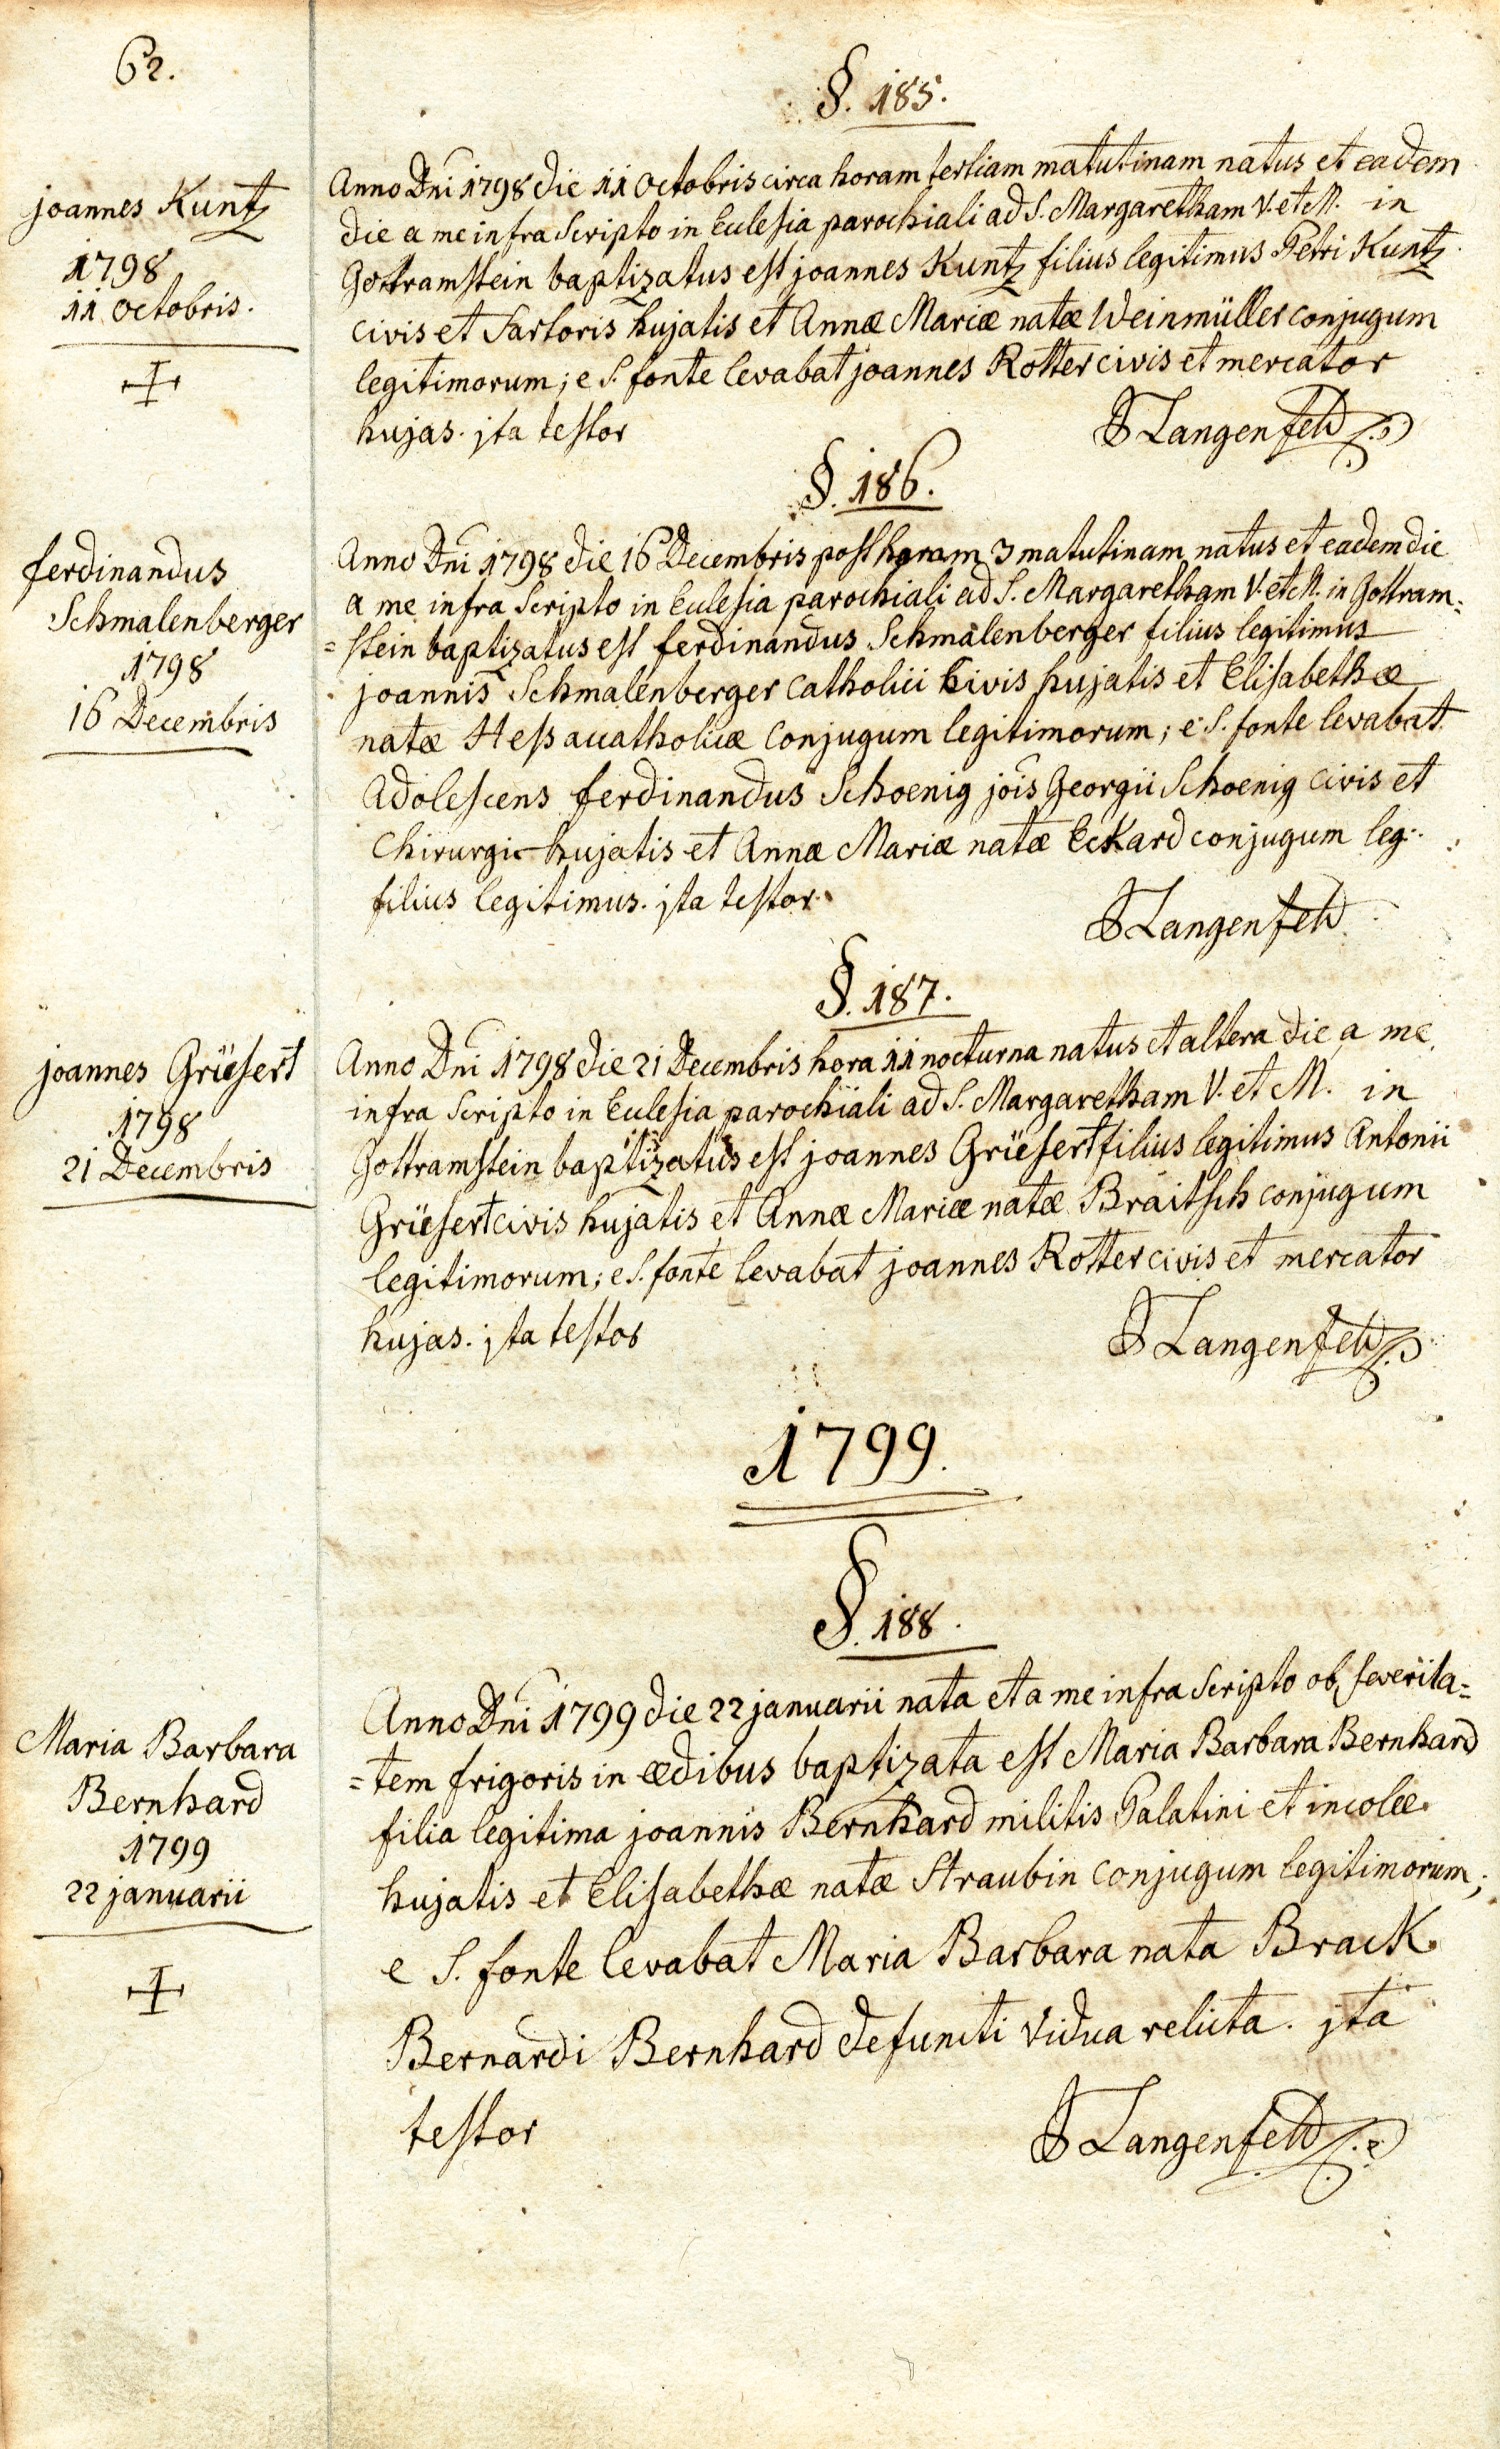 62.
§. 185.
joannes Kuntz
1798
11 octobris.
Anno Dni 1798 die 11 octobris circa horam tertiam matutinam natus et eadem
die a me infra scripto in Ecclesia parochiali ad S. Margaretham V. et M. in
Gottramstein baptizatus est joannes Kuntz filius legitimus Petri Kuntz
civis et Sartoris hujatis et Annæ Mariæ natæ Weinmüller conjugum
legitimorum; e S. fonte levabat joannes Rotter civis et mercator
hujas. jta testor
J Langenfeld
§. 186.
ferdinandus
Schmalenberger
1798
16 Decembris
Anno Dni 1798 die 16 Decembris post horam 3 matutinam natus et eadem die
a me infra scripto in Ecclesia parochiali ad S. Margaretham V. et M. in Gottram=
=stein baptizatus est ferdinandus Schmalenberger filius legitimus
joannis Schmalenberger catholici civis hujatis et Elisabethæ
natæ Heß acatholicæ conjugum legitimorum; e S. fonte levabat
adolescens ferdinandus Schoenig jois Georgii Schoenig civis et
chirurgi hujatis et Annæ Mariæ natæ Eckard conjugum leg:
filius legitimus. jta testor.
J Langenfeld
§. 187.
joannes Grüesert
1798
21 Decembris
Anno Dni 1798 die 21 Decembris hora 11 nocturna natus et altera die a me
infra scripto in Ecclesia parochiali ad S. Margaretham V. et M. in
Gottramstein baptizatus est joannes Grüesert filius legitimus Antonii
Grüesert civis hujatis et Annæ Mariæ natæ Braitsch conjugum
legitimorum; e S. fonte levabat joannes Rotter civis et mercator
hujas. jta testor
J Langenfeld
1799.
§. 188.
Maria Barbara
Bernhard
1799
22 januarii
Anno Dni 1799 die 22 januarii nata et a me infra scripto ob severita=
=tem frigoris in ædibus baptizata est Maria Barbara Bernhard
filia legitima joannis Bernhard militis Palatini et incolæ
hujatis et Elisabethæ natæ Straubin conjugum legitimorum;
e S. fonte levabat Maria Barbara nata Brack
Bernardi Bernhard defuncti vidua relicta. jta
testor
J Langenfeld